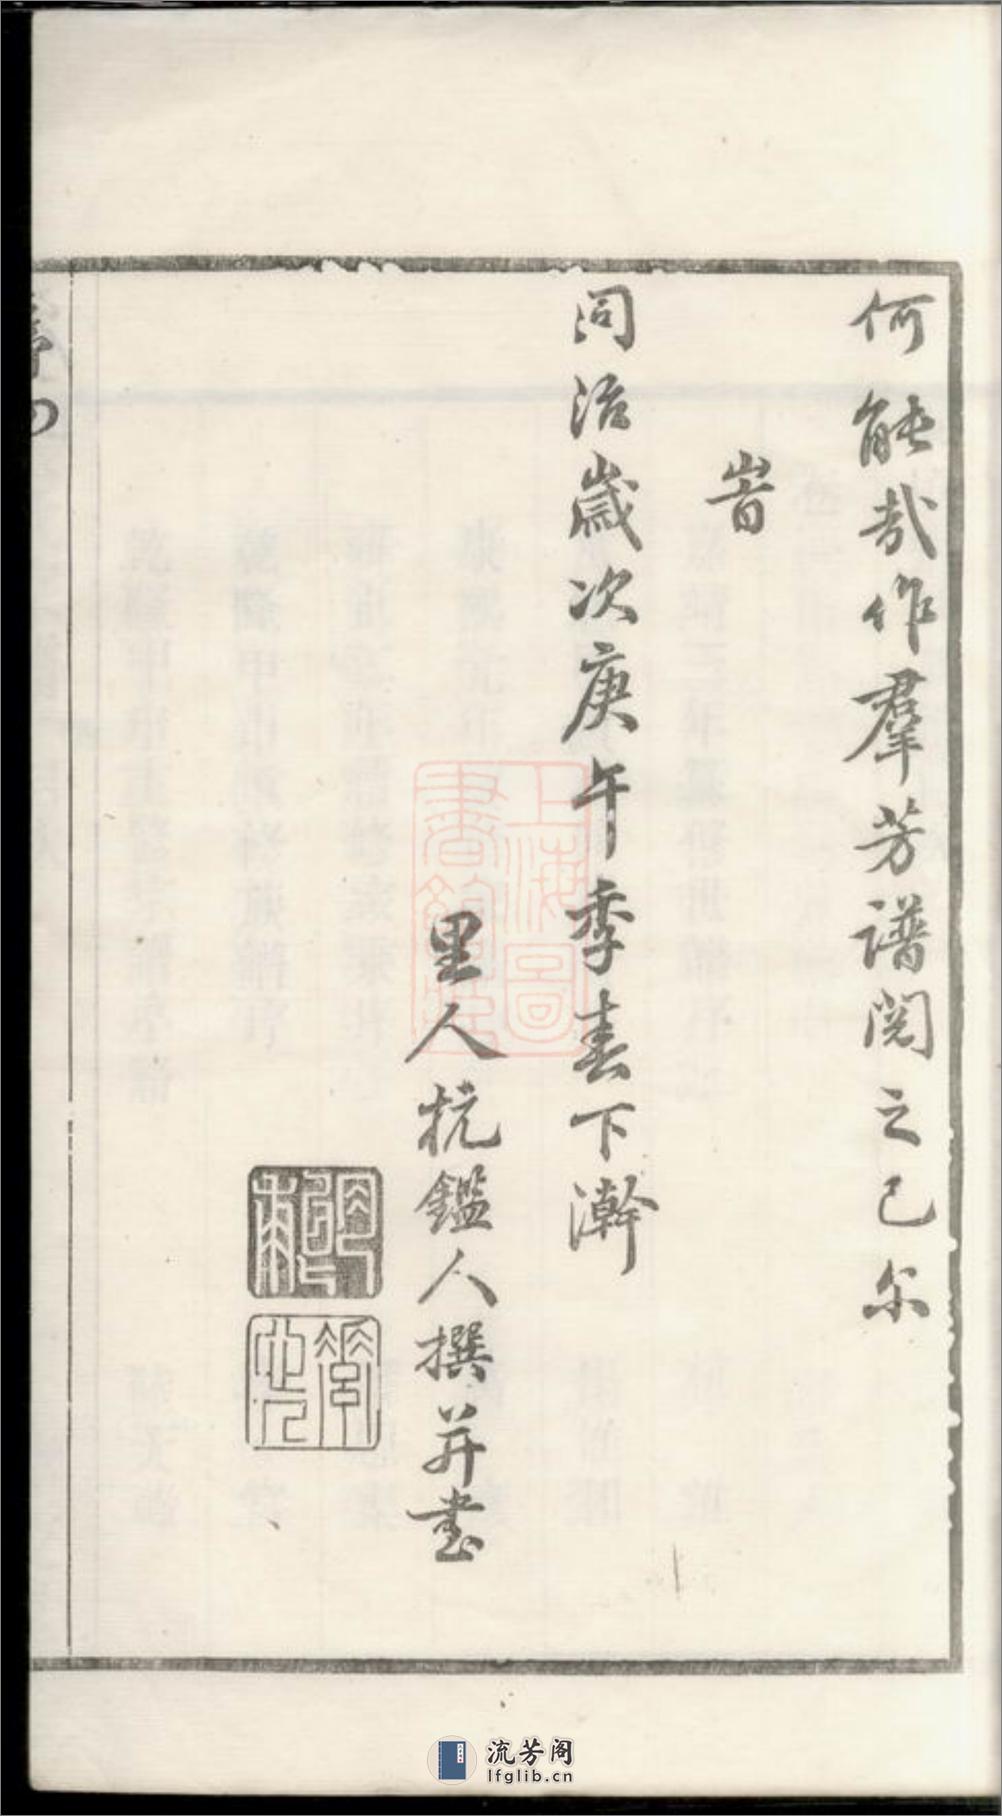 何能哉作羣芳譜閱之已尔
峕
同治歲次庚午季春下澣
里人杭鑑人撰并書
上海圖
書館藏
流芳阁
lfglib.cn